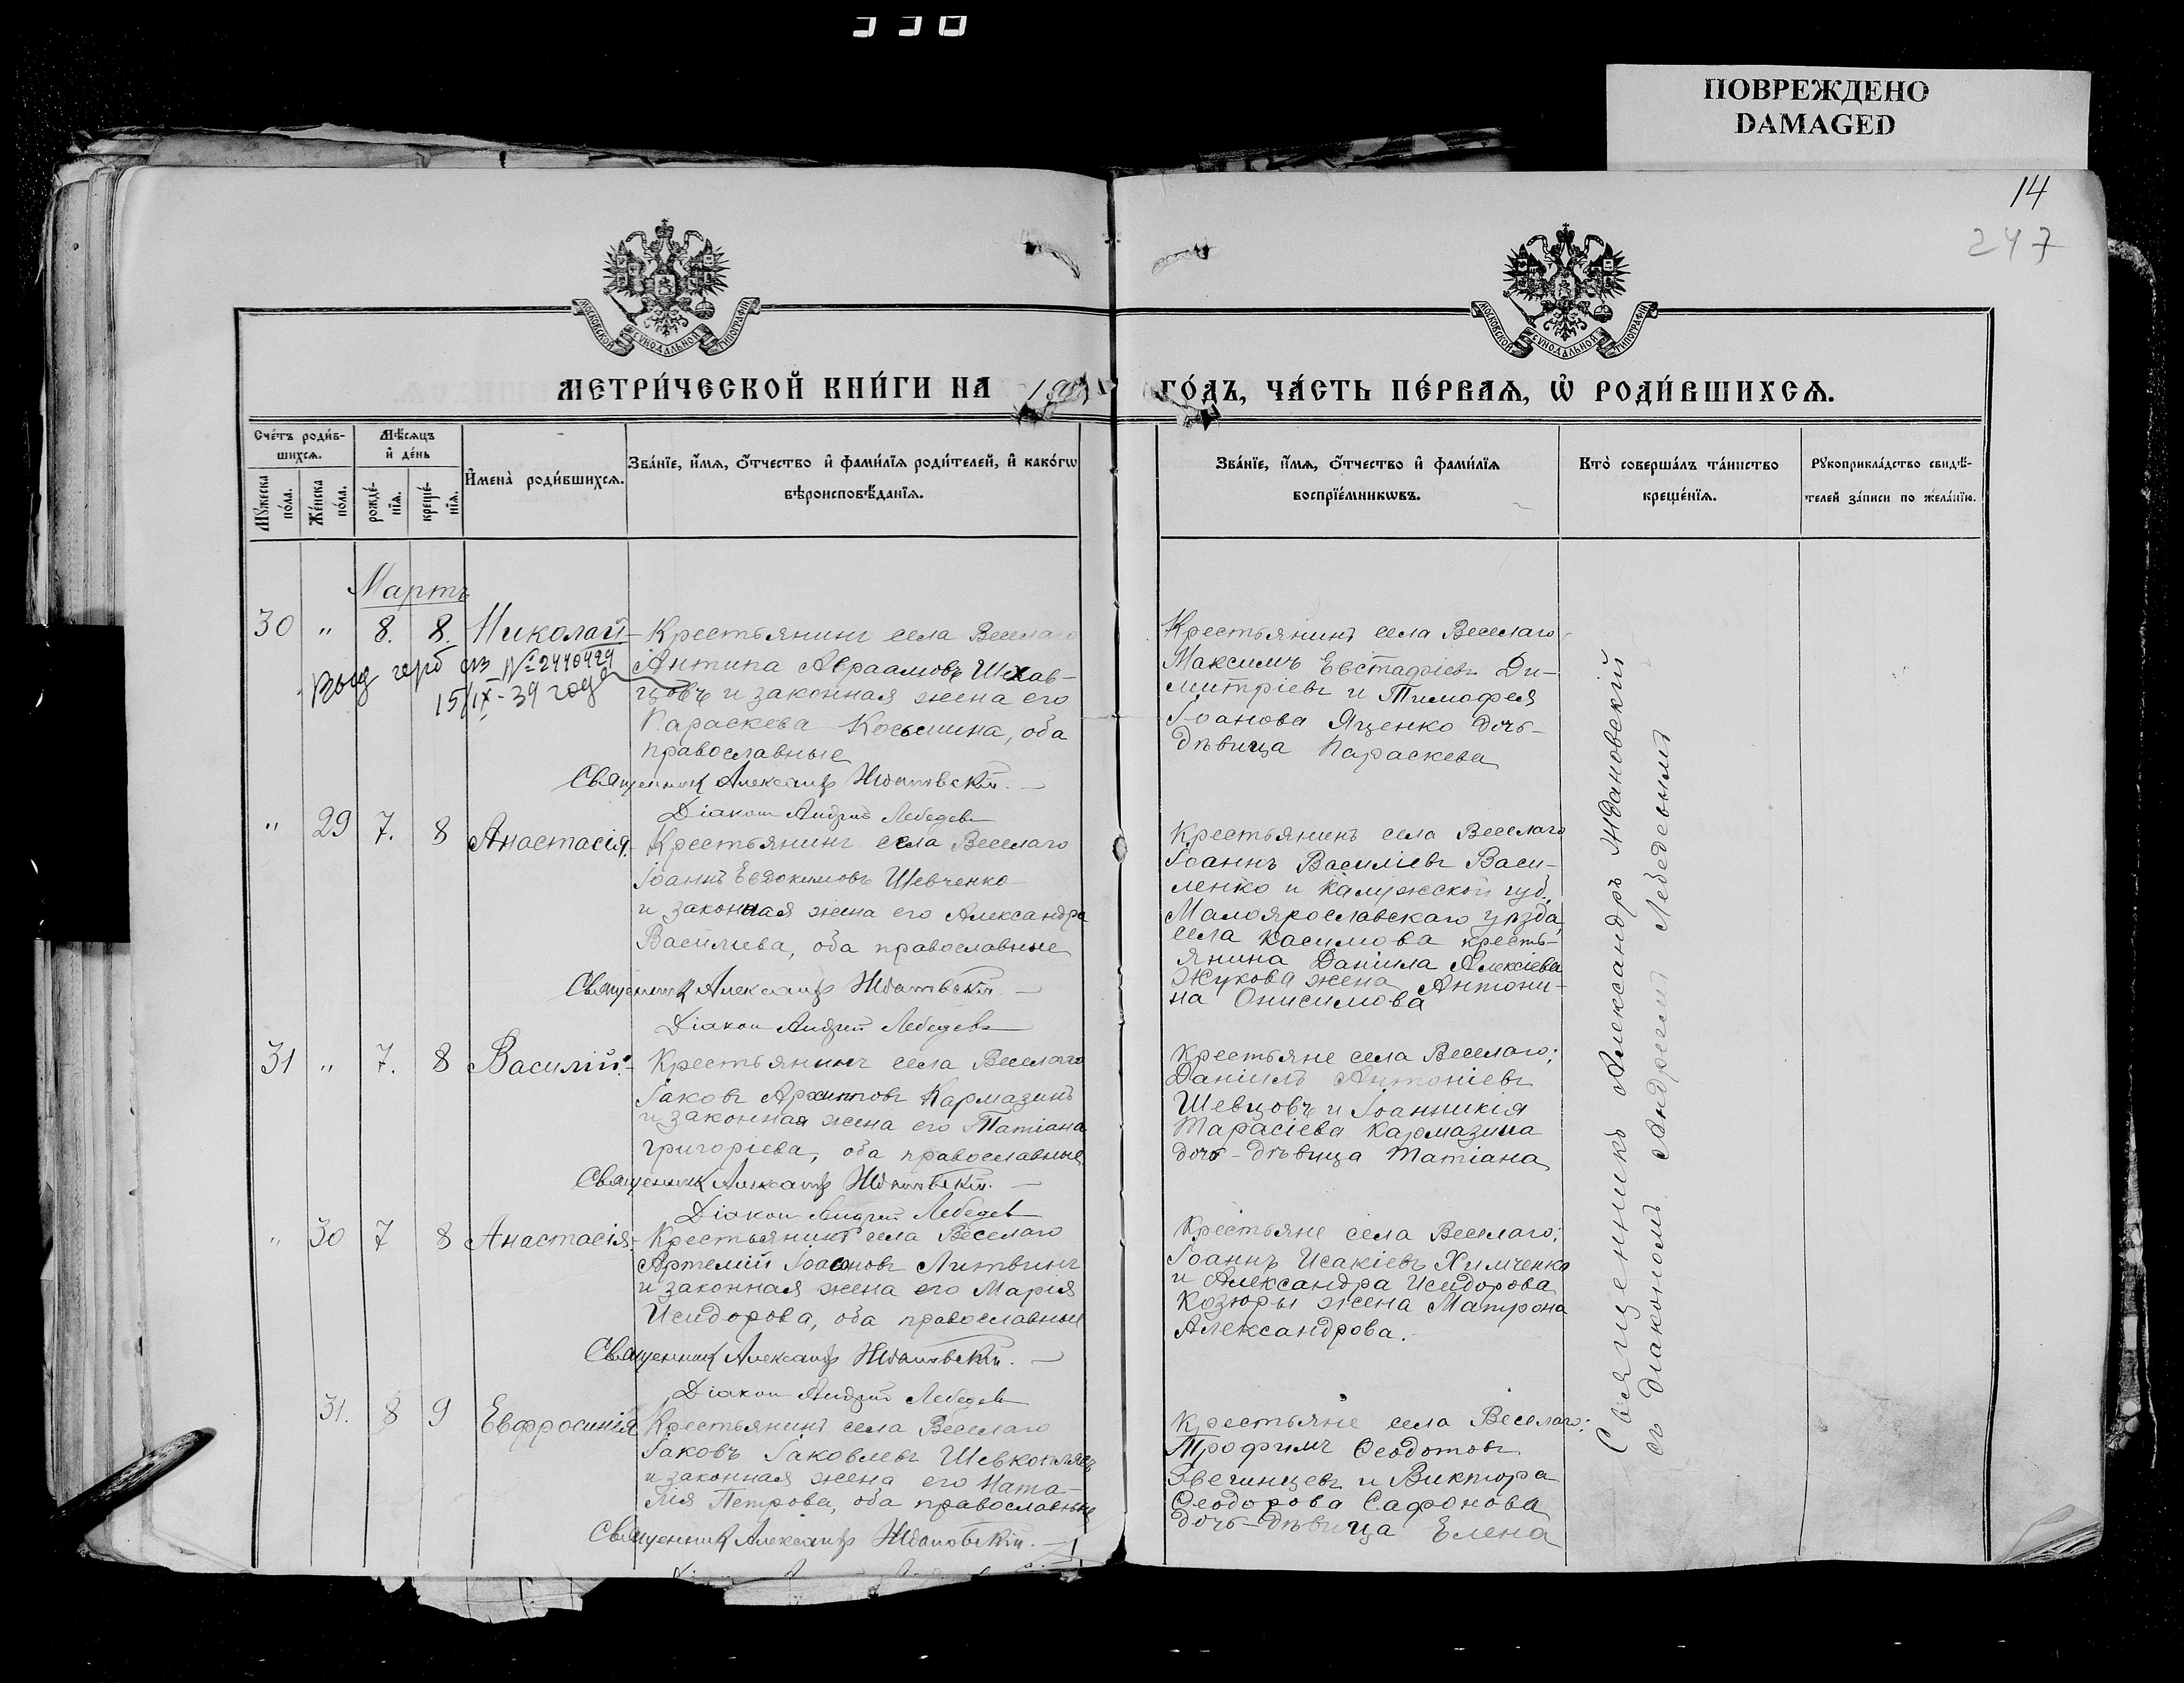 ПОВРЕЖДЕНО
DAMAGED
14
247
МОСКОВСКОЙ СѴНОДАЛЬНОЙ ТИПОГРАФІИ
МОСКОВСКОЙ СѴНОДАЛЬНОЙ ТИПОГРАФІИ
МЕТРИ́ЧЕСКОЙ КНИ́ГИ НА
ГО́ДЪ, ЧА́СТЬ ПЕ́РВАѦ, Ѡ҆ РОДИ́ВШИХСѦ.
Сче́тъ роди́в-
шихсѧ.
Мꙋ́жеска
по́ла.
Же́нска
по́ла.
Мѣ́сѧцъ
и҆ де́нь
рожде́-
нїѧ.
креще́-
нїѧ.
И҆мена̀ роди́вшихсѧ.
Зва́нїе, и҆́мѧ, ѻ҆́тчество и҆ фами́лїѧ роди́телей, и҆ како́гѡ
вѣроисповѣ́данїѧ.
Зва́нїе, и҆́мѧ, ѻ҆́тчество и҆ фами́лїѧ
воспрїе́мникѡвъ.
Кто̀ соверша́лъ та́инство
креще́нїѧ.
Рꙋкоприкла́дство свидѣ́-
телей за́писи по жела́нїю.
Мартъ
30 " 8. 8. Николай
Крестьянинъ села Веселаго
Антипа Авраамовъ Шехав-
цовъ и законная жена его
Параскева Косьмина, оба
православные
Священникъ Александръ Ждановскій.
Діаконъ Андрей Лебедевъ
Выд герб св №2440424
15/IX-39 года
Крестьянинъ села Веселаго
Максимъ Евстафіевъ Ди-
митріевъ и Тимофея
Іоанова Яценко дочь-
дѣвица Параскева
" 29 7. 8 Анастасія.
Крестьянинъ села Веселаго
Іоаннъ Евдокимовъ Шевченко
и законная жена его Александра
Василіева, оба православные
Священникъ Александръ Ждановскій.
Діаконъ Андрей Лебедевъ
Крестьянинъ села Веселаго
Іоаннъ Василіевъ Васи-
ленко и Калужской губ.,
Малоярославскаго уѣзда,
села Касимова кресть-
янина Даніила Алексіева
Жукова жена Антони-
на Онисимова
31 " 7. 8 Василій.
Крестьянинъ села Веселаго
Іаковъ Архиповъ Кармазинъ
и законная жена его Татіана
Григоріева, оба православные
Священникъ Александръ Ждановскій.
Діаконъ Андрей Лебедевъ
Крестьяне села Веселаго:
Даніилъ Антоніевъ
Шевцовъ и Іоанникія
Тарасіева Кармазина
дочь-дѣвица Татіана
" 30 7 8 Анастасія.
Крестьянинъ села Веселаго
Артемій Іоанновъ Литвинъ
и законная жена его Марія
Исидорова, оба православные
Священникъ Александръ Ждановскій.
Діаконъ Андрей Лебедевъ
Крестьяне села Веселаго:
Іоаннъ Исакіевъ Химченко
и Александра Исидорова
Козюры жена Матрона
Александрова.
31. 8 9 Евфросинія
Крестьянинъ села Веселаго
Іаковъ Іаковлевъ Шевкоплясъ
и законная жена его Ната-
лія Петрова, оба православные
Священникъ Александръ Ждановскій.
Крестьяне села Веселаго:
Трофимъ Ѳеодотовъ
Звегинцевъ и Виктора
Ѳеодорова Сафонова
дочь-дѣвица Елена
Священникъ Александръ Ждановскій
съ діакономъ Андреемъ Лебедевымъ